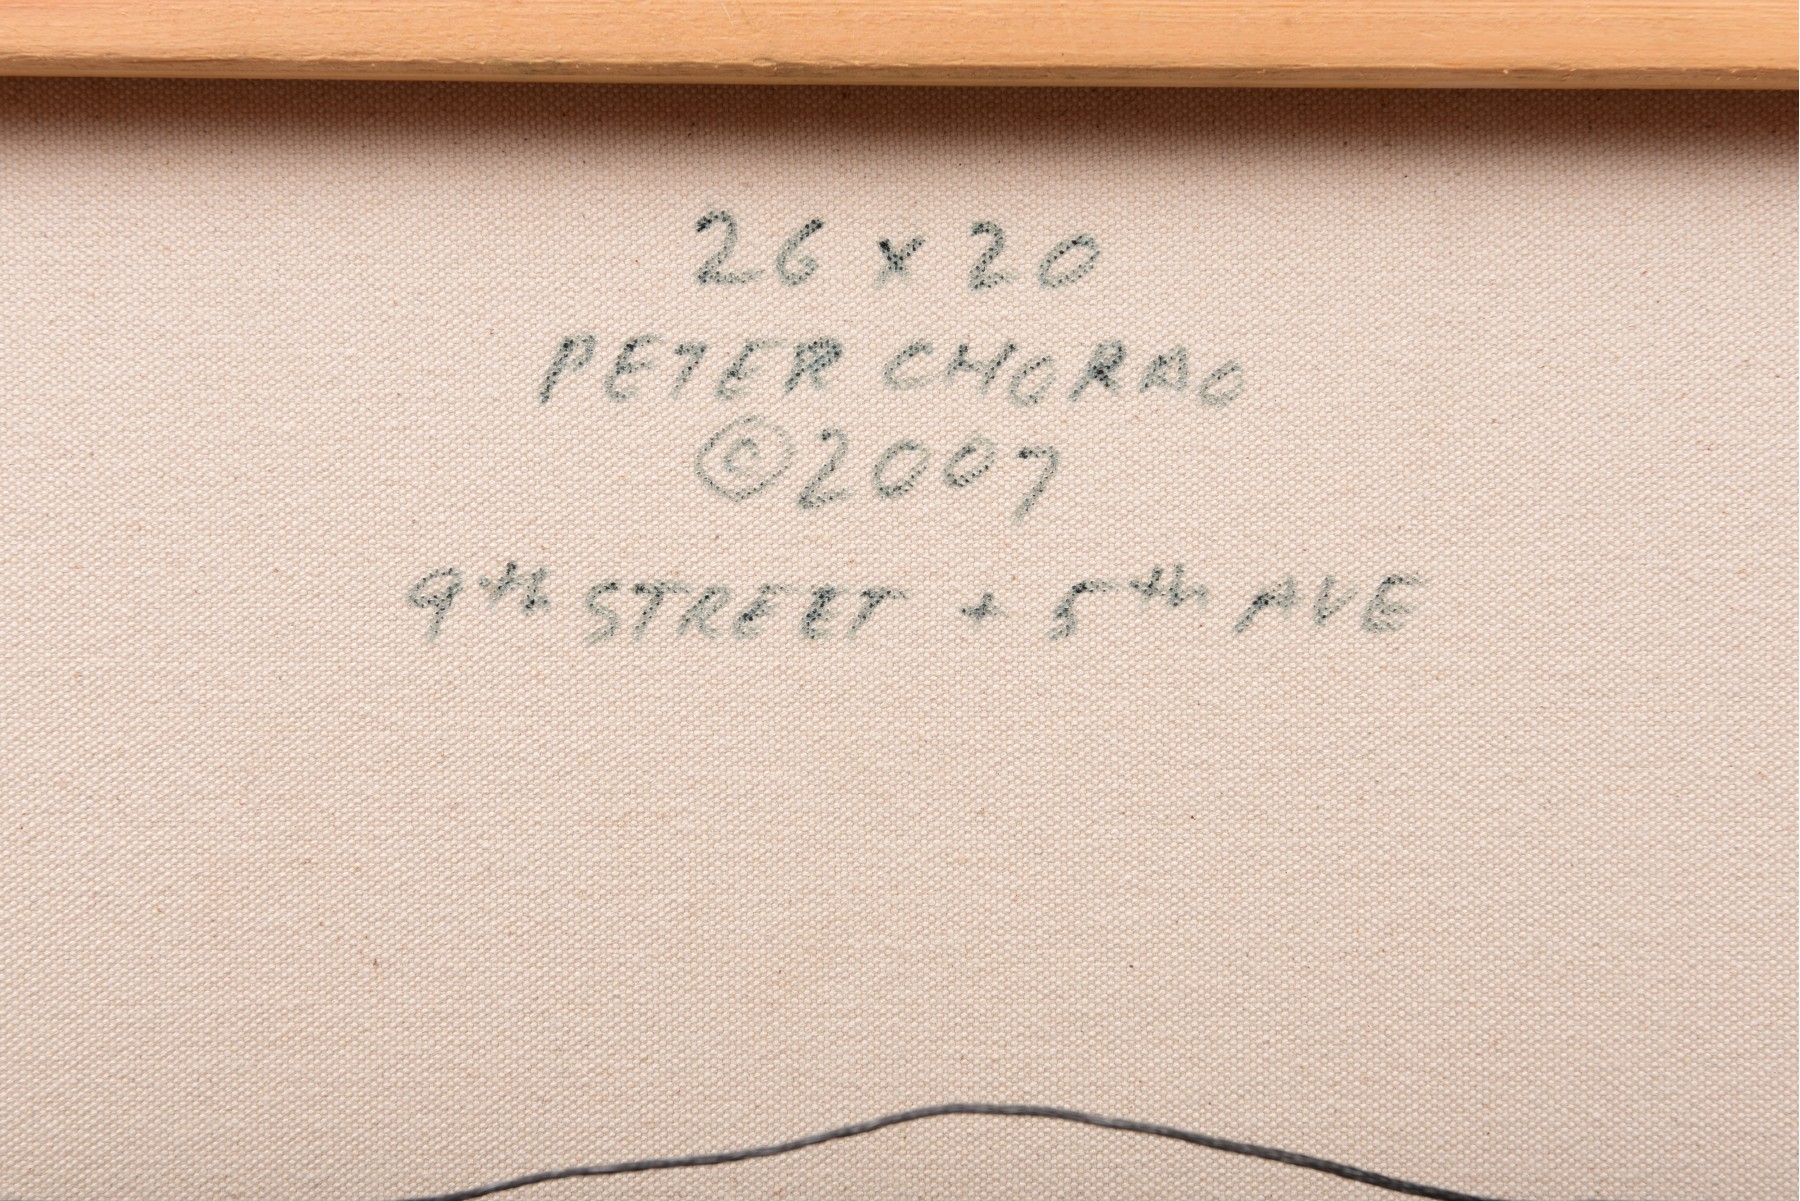 26 x 20
PETER CHORAO
©2007
9th STREET + 5th AVE